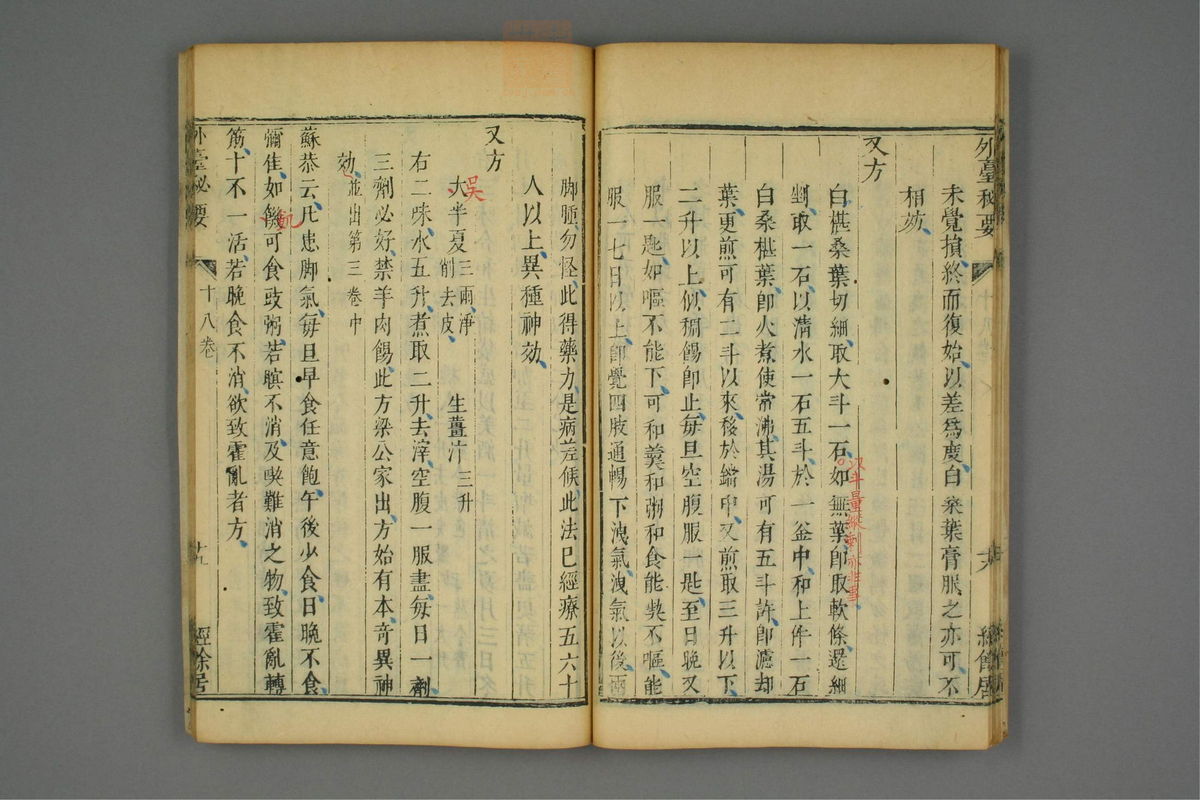 外臺秘要
十八卷
經餘居
未覺損終而復始以差爲度白桑葉膏服之亦可不
相妨
又方
白椹桑葉切細取大斗一石如無葉卽取軟條還細
剉取一石以清水一石五斗於一釜中和上件一石
白桑椹葉卽火煮使常沸其湯可有五斗許卽濾却
葉更煎可有二斗以來移於鐺中又煎取三升以下
二升以上似稠餳卽止每旦空腹服一匙至日晚又
服一匙如嘔不能下可和羹和粥和食能喫不嘔能
服一七日以上卽覺四肢通暢下洩氣洩氣以後兩
脚腫勿怪此得藥力是病差候此法已經療五六十
人以上異種神効
又方
吳
大半夏三兩淨削去皮 生薑汁三升
右二味水五升煮取二升去滓空腹一服盡每日一劑
三劑必好禁羊肉餳此方梁公家出方始有本奇異神
効並出第三卷中
蘇恭云凡患脚氣每旦早食任意飽午後少食日晚不食
彌佳如饑可食豉粥若瞑不消及喫難消之物致霍亂轉
飢
筋十不一活若晚食不消欲致霍亂者方
外臺秘要
十八卷
十九
經餘居